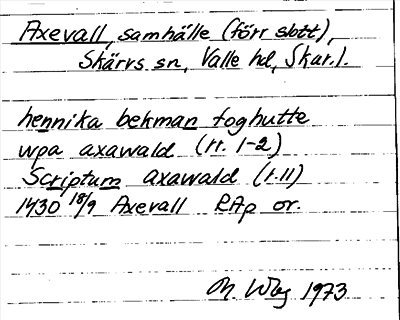 Axevall, samhälle (förr slott),
Skärvs sn, Valle hd, Skar.l.
hennika bekman foghutte
wpa axawald (rr. 1-2)
Scriptum axawald (r. 11)
1430 18/9 Axevall RAp or.
M. Wbg 1973